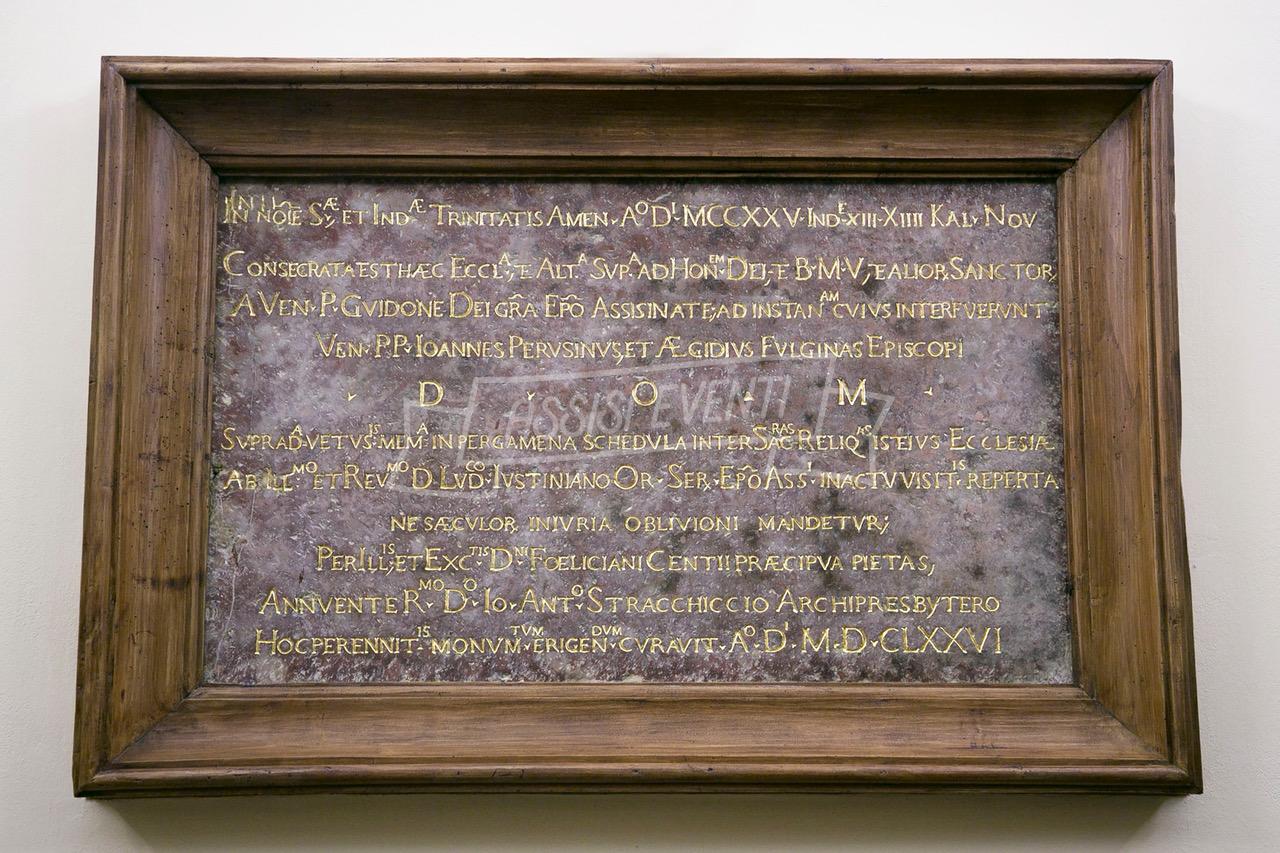 IN NOIE Sᴬᴱ, ET INDᴬᴱ TRINITATIS AMEN· Aᴼ Dᴵ· MCCXXV· INDᴱ· XIII· XIIII KAL· NOV
CONSECRATA EST HÆC ECCLᴬ·, E ALT·ᴬ SUP·ᴬ AD HONᴱᴹ· DEI, E B·M·V, E ALIOR, SANCTOR,
A VEN· P· GVIDONE DEI GR̂A EPÔ ASSISINATE, AD INSTANᴬᴹ CVIVS INTERFVERVNT
VEN· P·P· IOANNES PERVSINVS, ET ÆGIDIVS FVLGINAS EPISCOPI
D O M
ASSISI EVENTI
SUPRADᴬ· VETUSᴵˢ· MEMᴬ· IN PERGAMENA SCHEDVLA INTER SACᴿᴬˢ· RELIQᴬˢ ISTEIVS ECCLESIÆ
AB ILLᴹᴼ· ET REVᴹᴼ· D· LUDᶜᴼ· IVSTINIANO OR· SER· EPÔ ASSᴵ· IN ACTU VISITᴵˢ· REPERTA
NE SÆCVLOR, INIVRIA OBLIVIONI MANDETVR;
PER ILLᴵˢ, ET EXCᵀᴵˢ· Dᴺᴵ· FOELICIANI CENTII PRÆCIPVA PIETAS,
ANNVENTE Rᴹᴼ· Dᴼ· IO· ANTᴼ· STRACCHICCIO ARCHIPRESBYTERO
HOC PERENNITᴵˢ· MONVMᵀᵛᴹ· ERIGENᴰᵛᴹ· CVRAVIT· Aᴼ· Dᴵ· M·D·CLXXVI